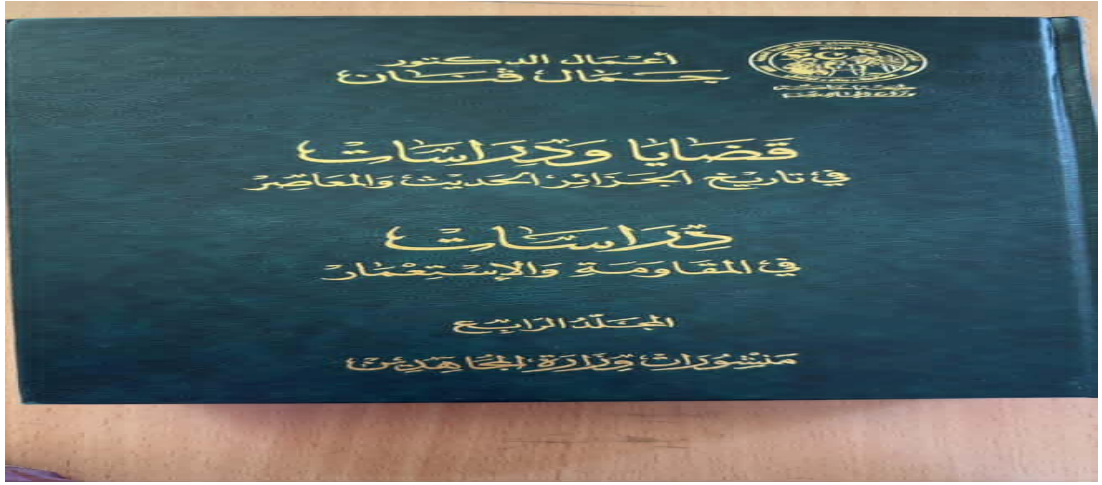 أعمال الدكتور
جمال قنان
قضايا ودراسات
في تاريخ الجزائر الحديث والمعاصر
دراسات
في المقاومة والإستعمار
المجلد الرابع
منشورات وزارة المجاهدين